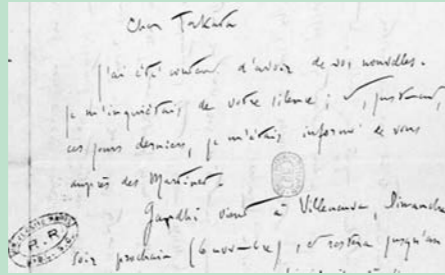 Cher Takata
j'ai été content d'avoir de vos nouvelles.
je m'inquiétais de votre silence ; et, justement
ces jours derniers, je m'étais informé de vous
auprès des Martinet.
Gandhi vient à Villeneuve, Dimanche
soir prochain (6 novembre), et restera jusqu'au
R.R